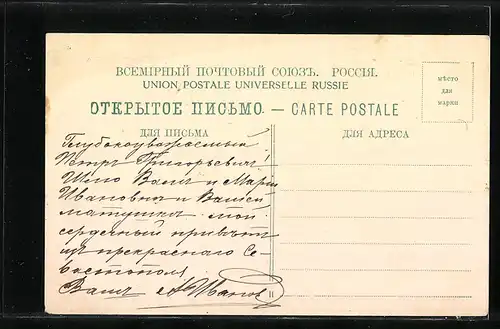 ВСЕМІРНЫЙ ПОЧТОВЫЙ СОЮЗЪ. РОССІЯ.
UNION POSTALE UNIVERSELLE RUSSIE
ОТКРЫТОЕ ПИСЬМО. — CARTE POSTALE
мѣсто
для
марки
ДЛЯ ПИСЬМА
ДЛЯ АДРЕСА
Глубокоуважаемый
Петръ Григорьевичъ!
Шлю Вамъ и Маріи
Ивановнѣ и Вашей
матушкѣ мой
сердечный привѣтъ
изъ прекраснаго Се-
вастополя
Вашъ А Иванов